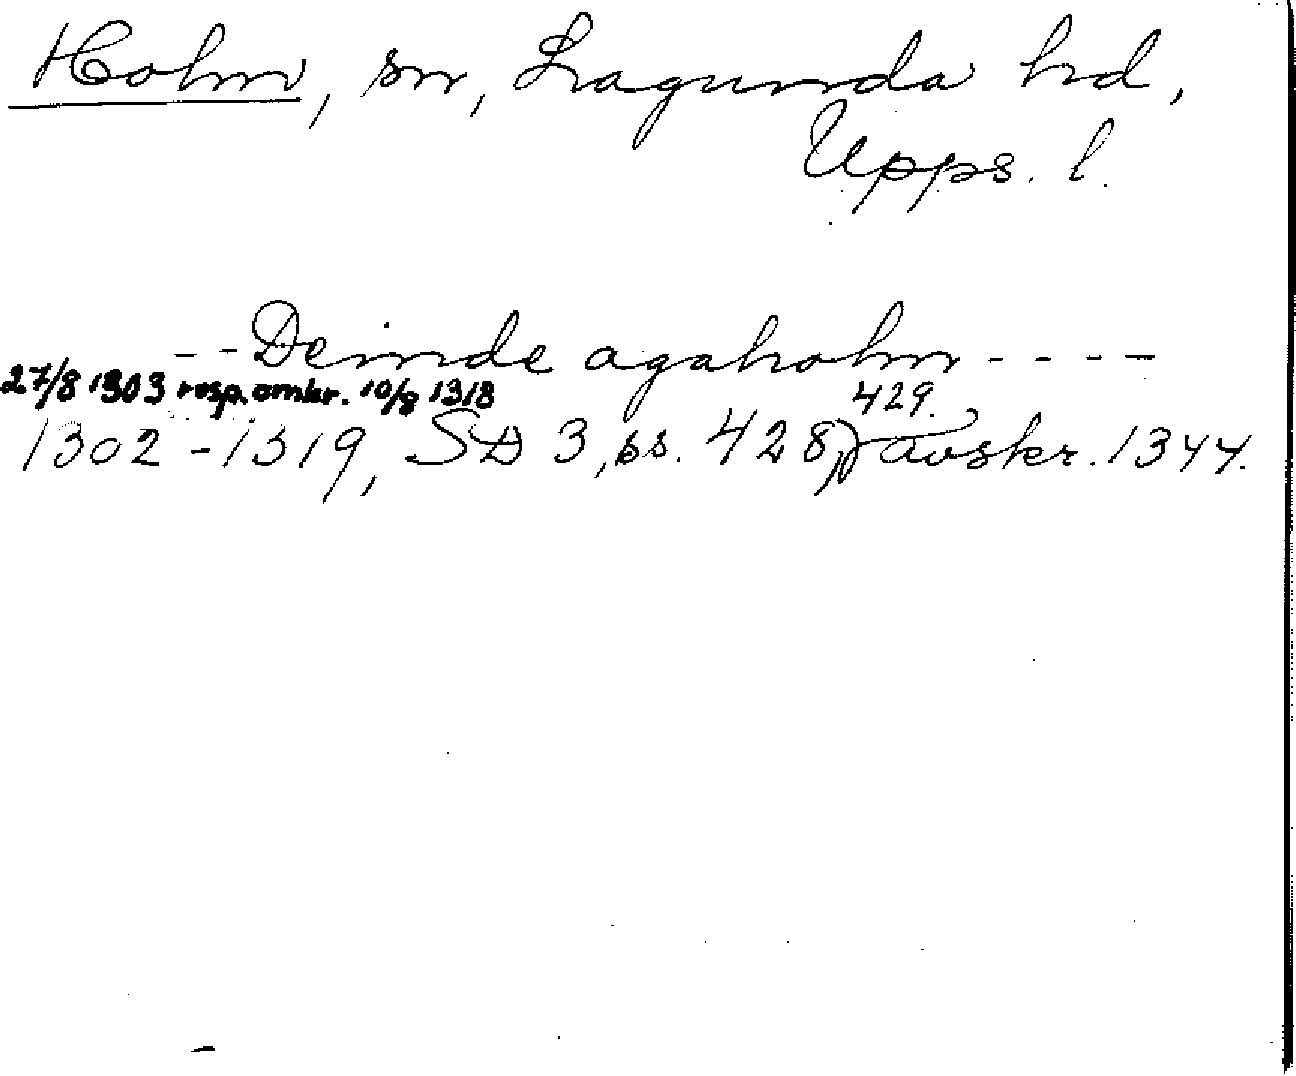 Holm, sn, Lagunda hd,
Upps. l.
- - Deinde agaholm - - - -
27/8 1303 resp. omkr. 10/8 1318
429.
1302-1319, SD 3, ss. 428, avskr. 1344.